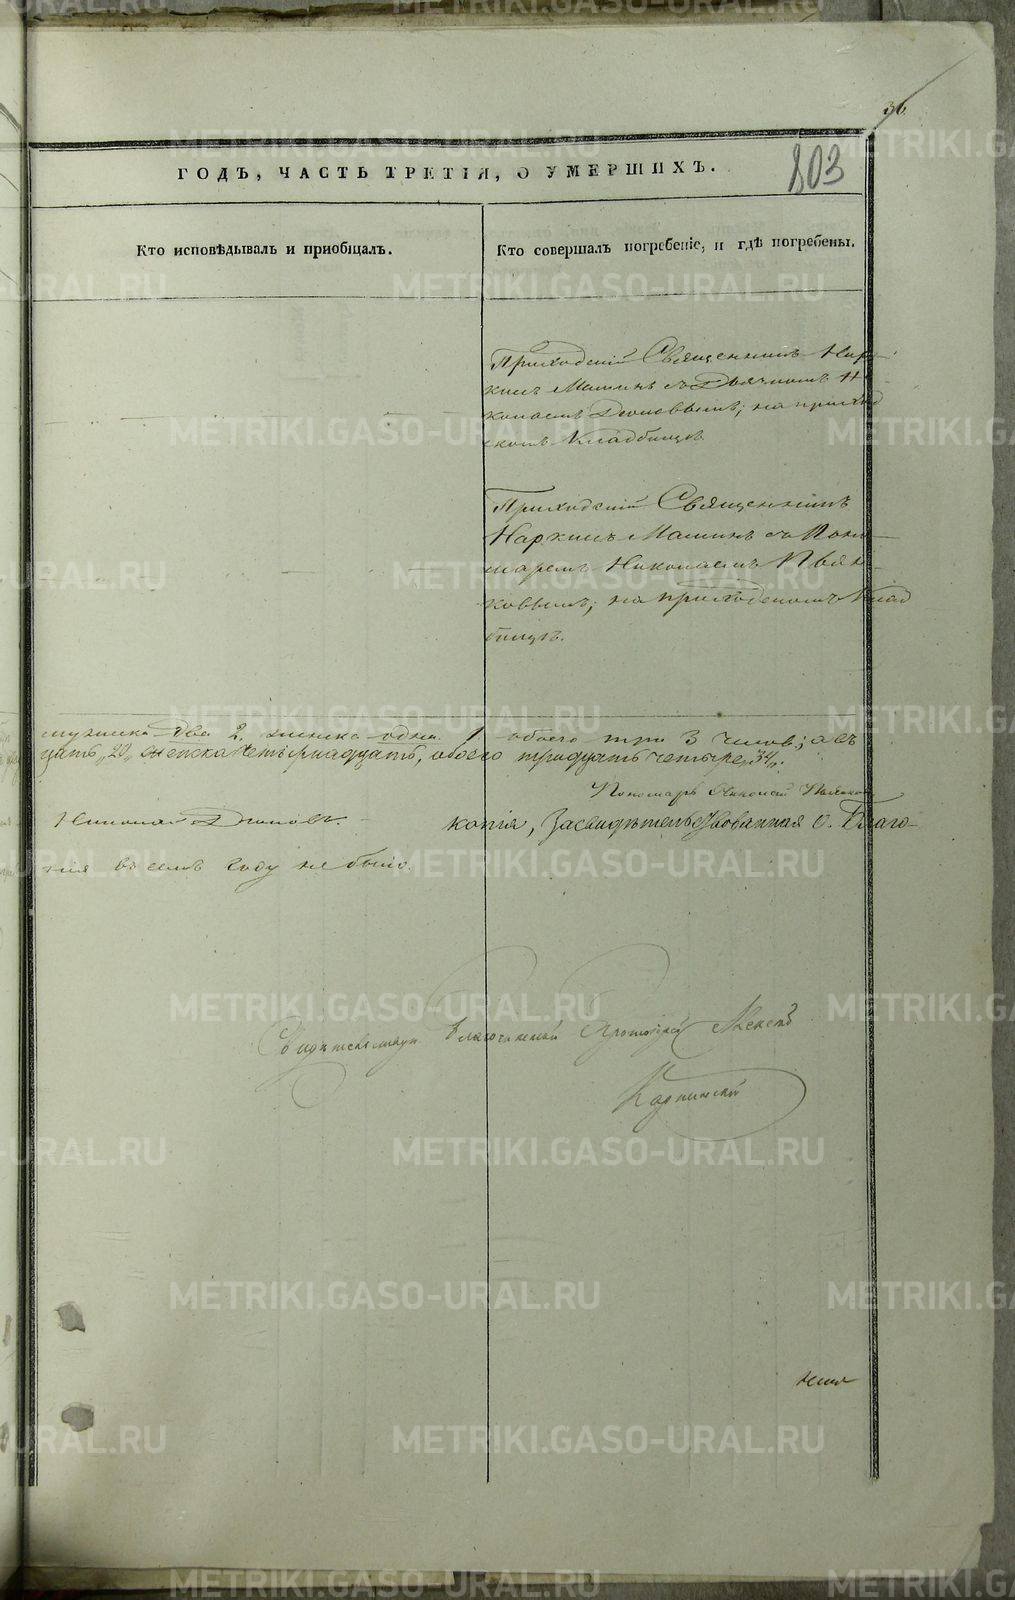 36
803
ГОДЪ, ЧАСТЬ ТРЕТІЯ, О УМЕРШИХЪ.
Кто исповѣдывалъ и приобщалъ.
Кто совершалъ погребеніе, и гдѣ погребены.
Приходскій Священникъ Нар-
кисъ Мамин съ Дьячкомъ Ни-
колаемъ Диановымъ; на приход
скомъ Кладбищѣ
Приходскій Священникъ
Наркисъ Маминъ съ Поно-
маремъ Николаемъ
ковымъ; на приходскомъ Клад
бищѣ.
мужеска два 2. женска одна 1 обоего три 3 ; а съ
цать „ 20 „ женска четырнадцать, обоего тридцать четыре „34„.
Пономарь Николай
Николай
копія, Засвидѣтельствованная О. Благо-
нія въ семъ году не было.
Свидѣтельствую Благочинный Протоіерей
Карпинскій
METRIKI.GASO-URAL.RU